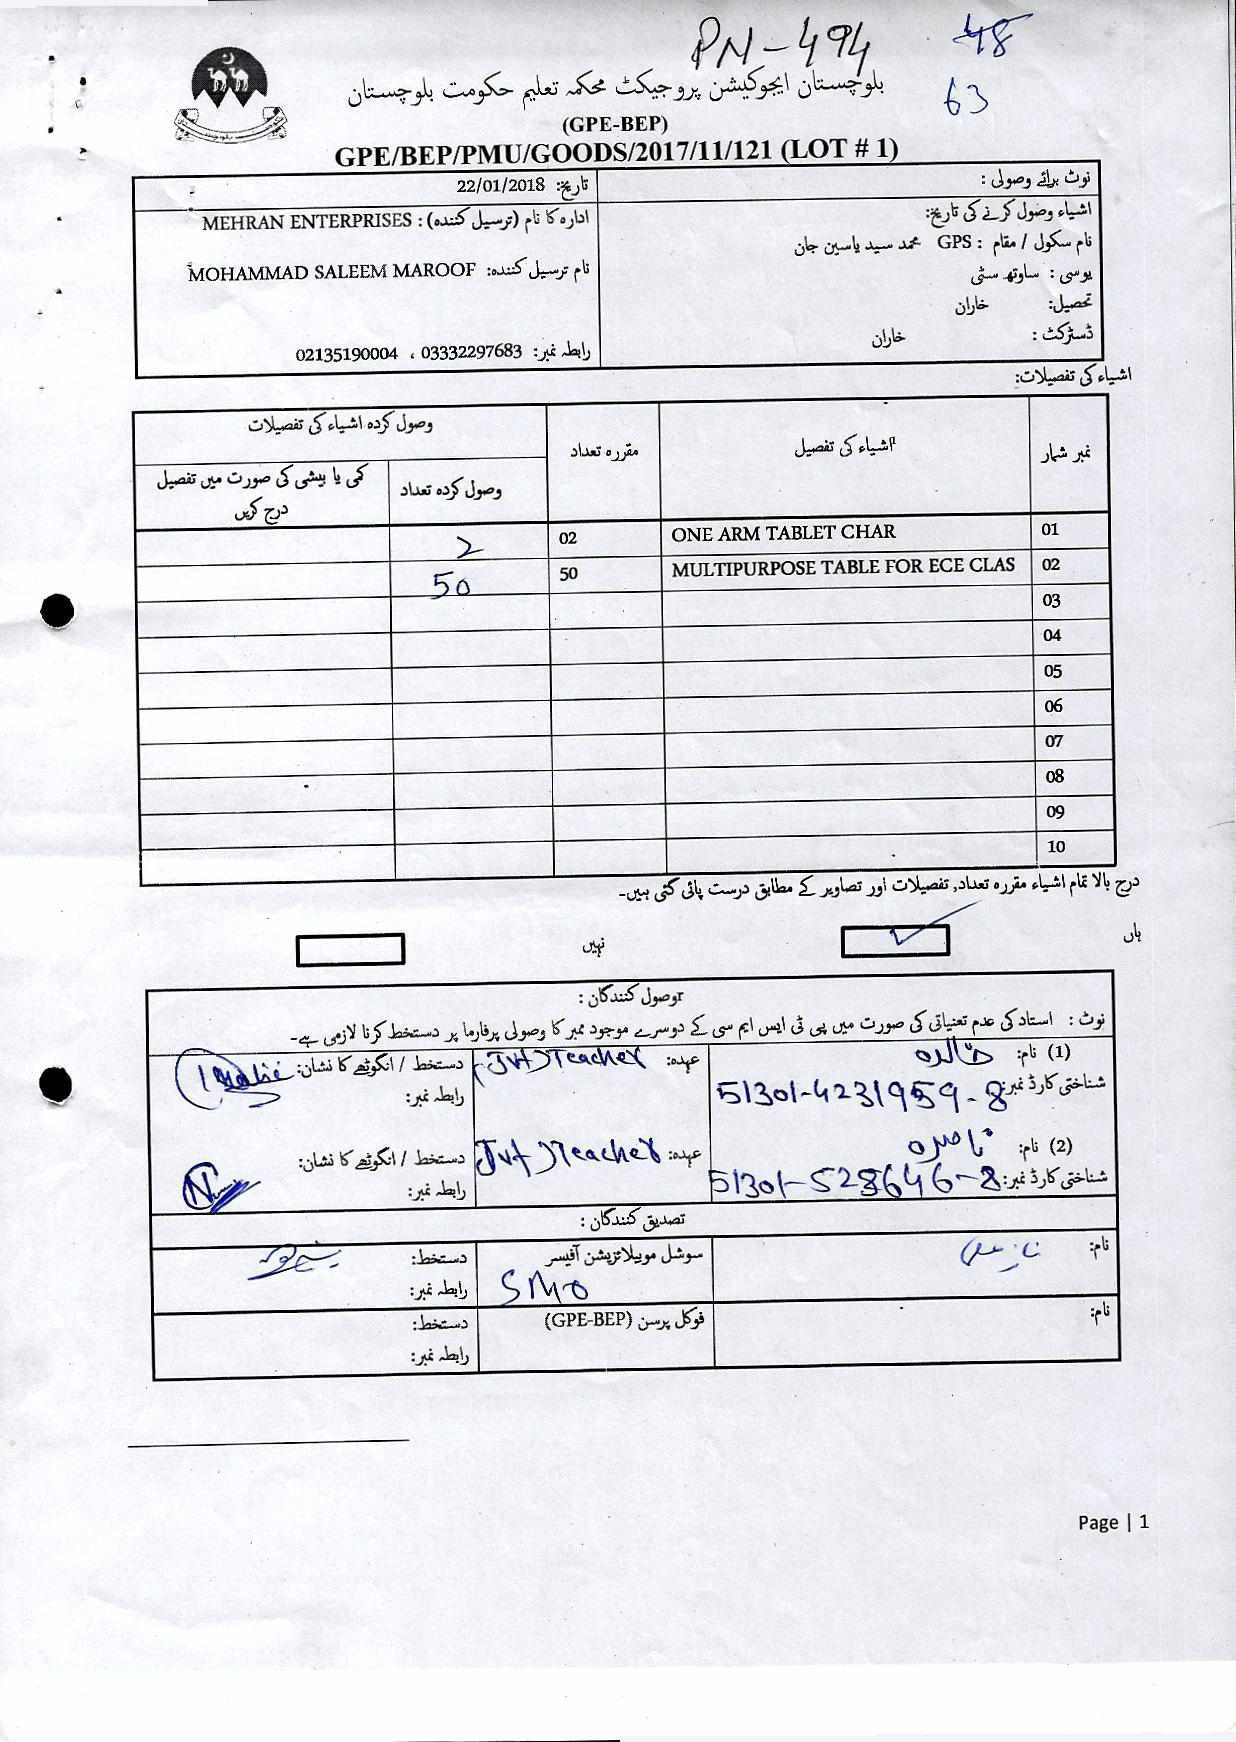 PN-494
48
63
بلوچستان ایجوکیشن پروجیکٹ محکمہ تعلیم حکومت بلوچستان
(GPE-BEP)
GPE/BEP/PMU/GOODS/2017/11/121 (LOT # 1)
نوٹ برائے وصولی :
تاریخ: 22/01/2018
اشیاء وصول کرنے کی تاریخ:
نام سکول / مقام : GPS محمد سید یاسین جان
یو سی : ساوتھ سٹی
تحصیل: خاران
ڈسٹرکٹ : خاران
ادارہ کا نام (ترسیل کنندہ) : MEHRAN ENTERPRISES
نام ترسیل کنندہ: MOHAMMAD SALEEM MAROOF
رابطہ نمبر: 03332297683 ، 02135190004
اشیاء کی تفصیلات:
نمبر شمار اشیاء کی تفصیل مقررہ تعداد وصول کردہ اشیاء کی تفصیلات
وصول کردہ تعداد کمی یا بیشی کی صورت میں تفصیل درج کریں
01 ONE ARM TABLET CHAR 02 2
02 MULTIPURPOSE TABLE FOR ECE CLAS 50 50
03
04
05
06
07
08
09
10
درج بالا تمام اشیاء مقررہ تعداد, تفصیلات اور تصاویر کے مطابق درست پائی گئی ہیں۔
ہاں نہیں
وصول کنندگان :
نوٹ : استاد کی عدم تعنیاتی کی صورت میں پی ٹی ایس ایم سی کے دوسرے موجود ممبر کا وصولی پرفارما پر دستخط کرنا لازمی ہے۔
(1) نام: خالدہ عہدہ: JVT Teacher دستخط / انگوٹھے کا نشان:
شناختی کارڈ نمبر: 51301-4231959-8 رابطہ نمبر:
(2) نام: ناصرہ عہدہ: JVT Teacher دستخط / انگوٹھے کا نشان:
شناختی کارڈ نمبر: 51301-528646-8 رابطہ نمبر:
تصدیق کنندگان :
نام: سوشل موبیلائزیشن آفیسر دستخط:
SMO رابطہ نمبر:
نام: فوکل پرسن (GPE-BEP) دستخط:
رابطہ نمبر:
Page | 1